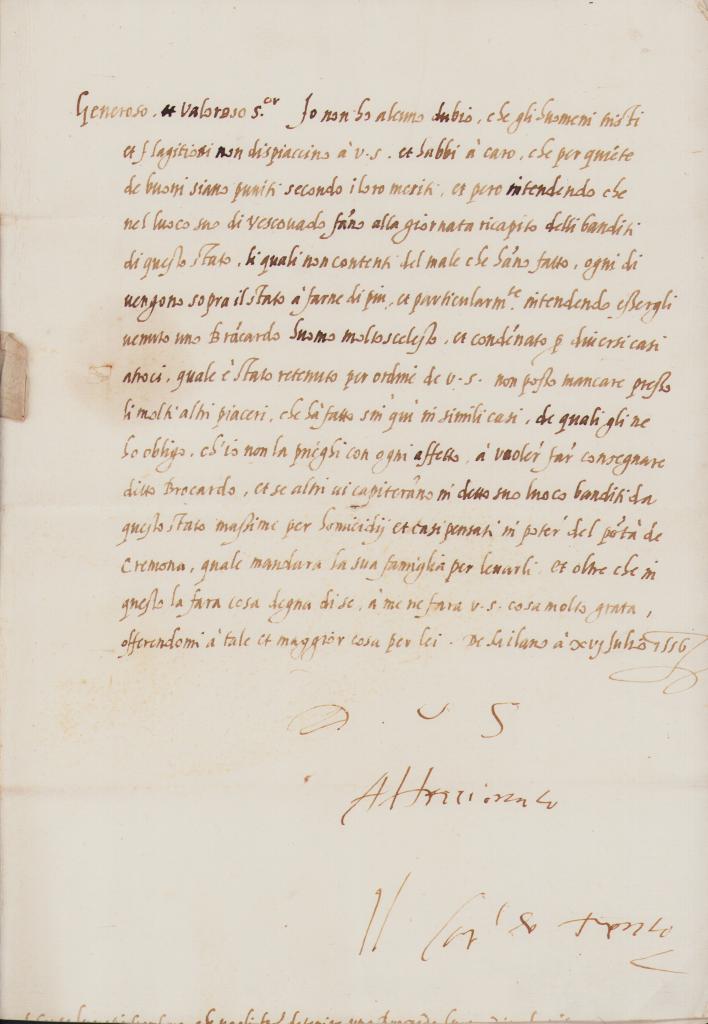 Generoso. et valoroso s.or Io non ho alcuno dubio, che gli huomeni tristi
et flagitiosi non dispiaccino à v.s. et habbi à caro, che per quiete
de buoni siano puniti secondo i loro meriti, et pero intendendo che
nel luoco suo di Vescouado fano alla giornata ricapito delli banditi
di questo stato, li quali non contenti del male che hano fatto, ogni di
vengono sopra il stato à farne di piu, et particularm.te intendendo essergli
venuto uno Brocardo huomo molto scelesto, et condenato p diuersi casi
atroci, quale è stato retenuto per ordine de v.s. non posso mancare presso
li molti altri piaceri, che hà fatto sin qui in simili casi, de quali gli ne
ho obligo, ch'io non la prieghi con ogni affetto, à voler far consegnare
ditto Brocardo, et se altri ui capiterano in detto suo luoco banditi da
questo stato massime per homicidij et casi pensati in poter del potà de
Cremona, quale mandara la sua famiglia per leuarli. et oltre che in
questo la fara cosa degna di se, à me ne fara v.s. cosa molto grata,
offerendomi à tale et maggior cosa per lei. De Milano à xvj Julio 1556
D. V S
Il Car.l de Trento